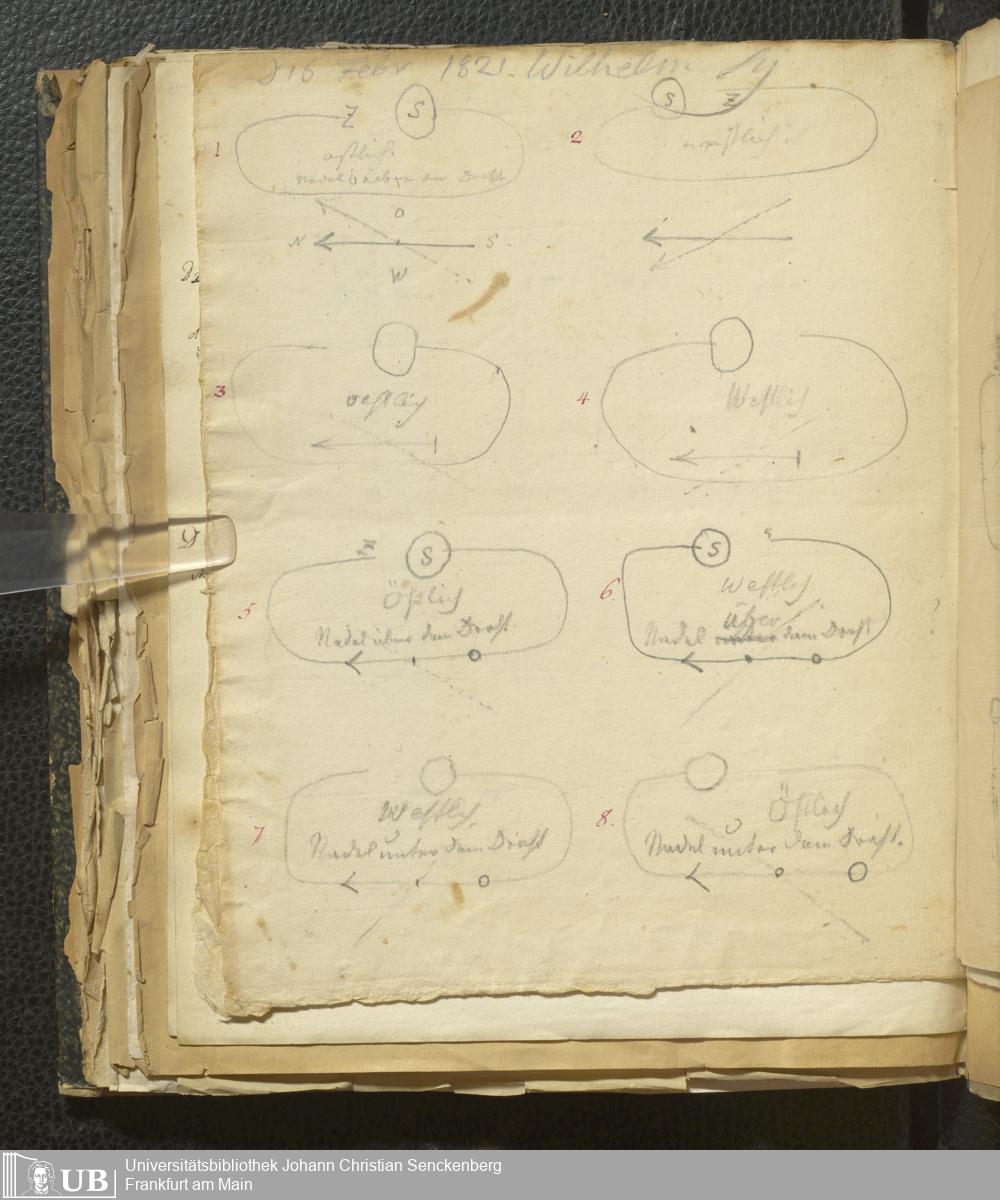 d 16 Febr 1821. Wilhelm
1
Z S
östlich.
Nadel über dem Draht
O
N S.
W
2
S Z
westlich.
3
4
Westlich
5
S
Östlich
Nadel über dem Draht
6.
S
Westlich
über
Nadel unter dem Draht
7
Westlich
Nadel unter dem Draht
8.
Östlich
Nadel unter dem Draht.
UB
Universitätsbibliothek Johann Christian Senckenberg
Frankfurt am Main